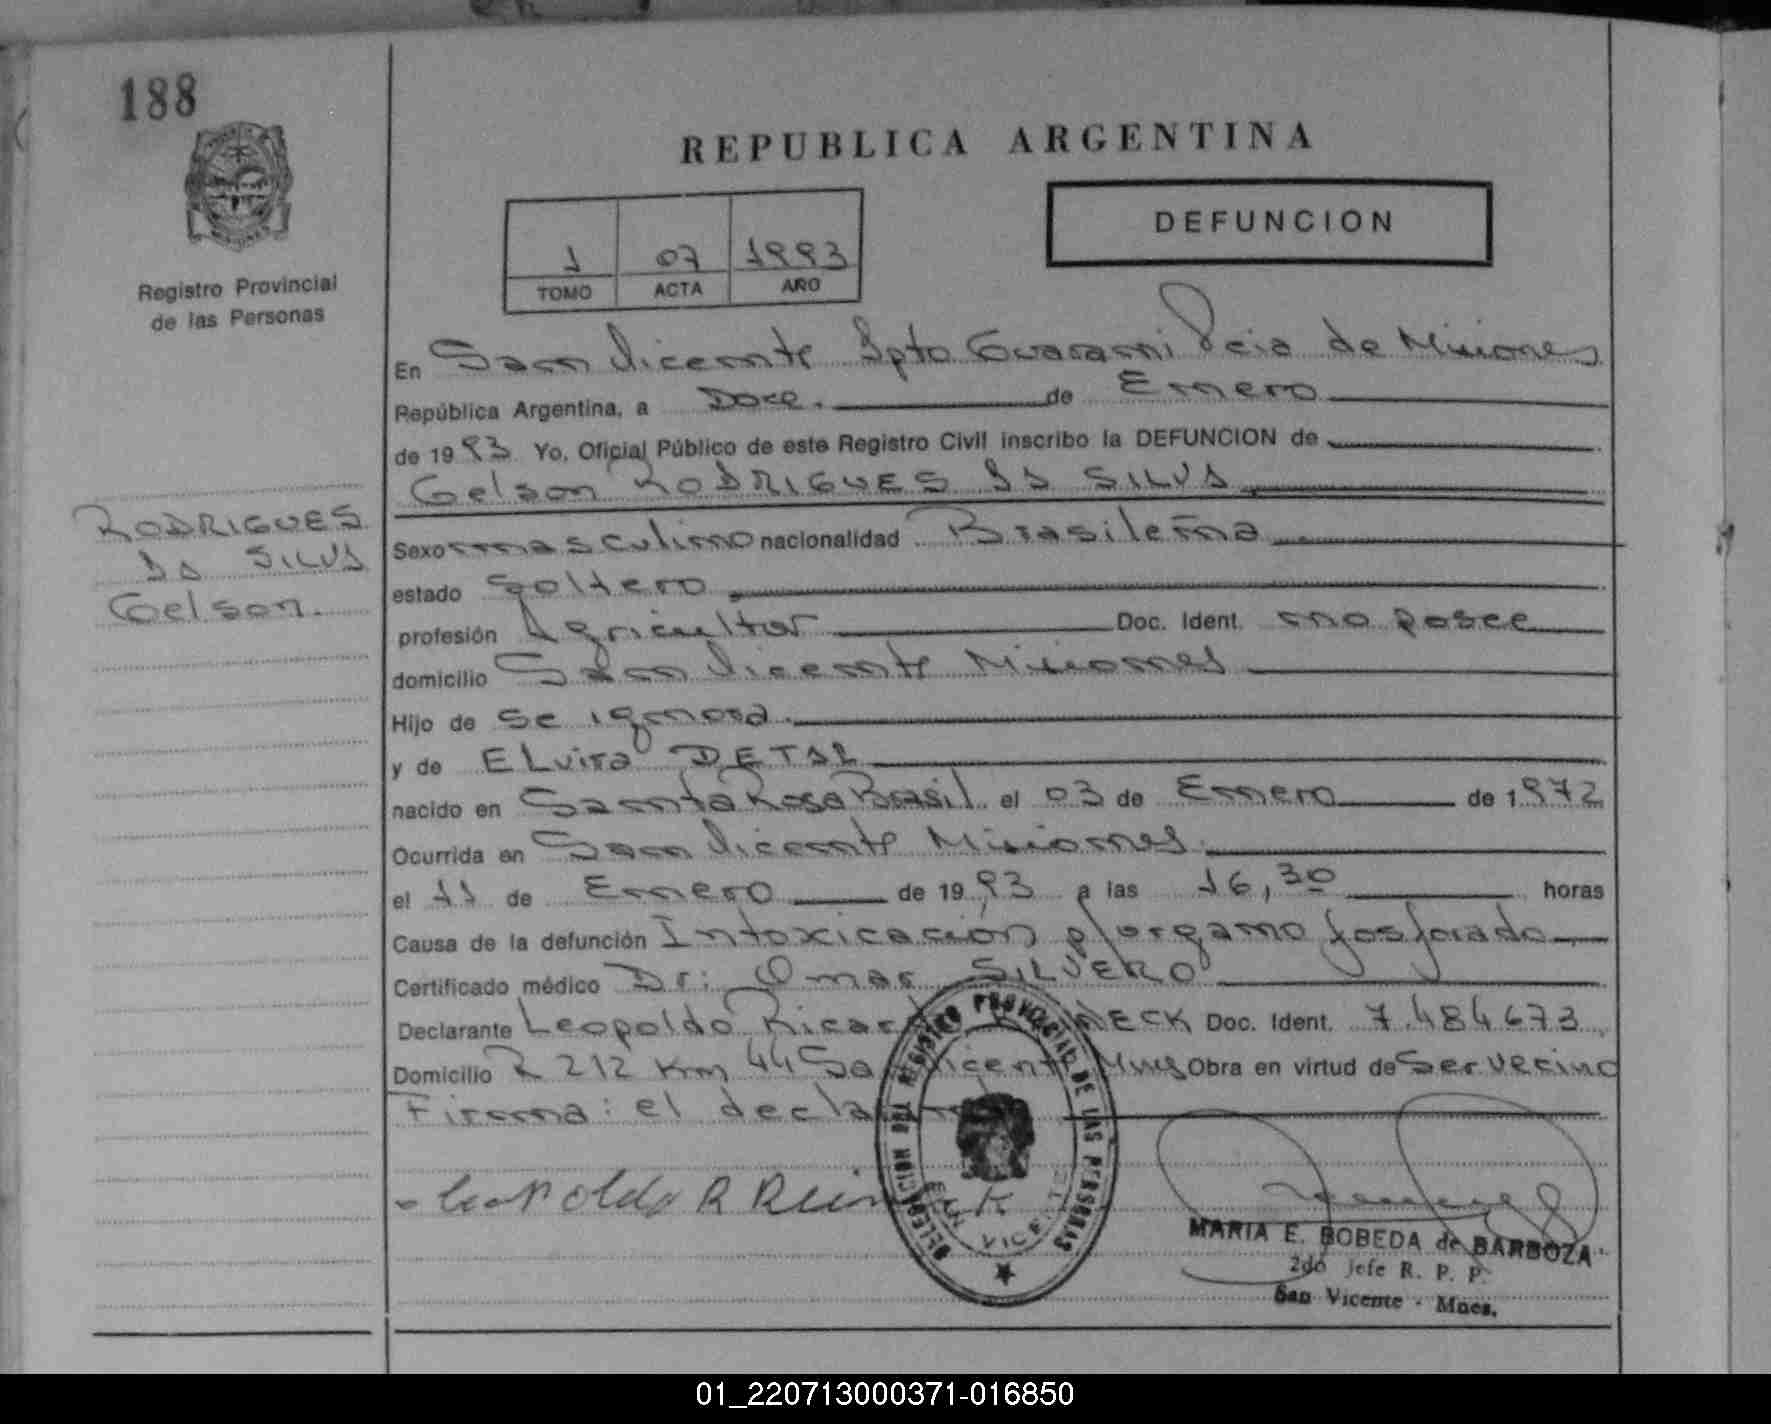 188
REPUBLICA ARGENTINA
DEFUNCION
1 07 1993
TOMO ACTA AÑO
Registro Provincial
de las Personas
En San Vicente Dpto Guarani Pcia de Misiones
República Argentina, a Doce. de Enero
de 1993 Yo, Oficial Público de este Registro Civil inscribo la DEFUNCION de
Gelson RODRIGUES DA SILVA
RODRIGUES
DA SILVA
Gelson.
Sexo masculino nacionalidad Brasileña
estado Soltero
profesión Agricultor Doc. Ident. no posee
domicilio San Vicente Misiones
Hijo de se ignora.
y de ELvira
nacido en Santa Rosa Brasil el 03 de Enero de 1972
Ocurrida en San Vicente Misiones
el 11 de Enero de 1993 a las 16,30 horas
Causa de la defunción Intoxicación p/organo fosforado
Certificado médico Dr: Omar SILVERO
Declarante Leopoldo Ricardo Doc. Ident. 7.484673
Domicilio R 212 Km 44 San Vicente Mnes Obra en virtud de Ser vecino
Firma: el declarante
Leopoldo R
DELEGACION DEL REGISTRO PROVINCIAL DE LAS PERSONAS
SAN VICENTE
MARIA E. BOBEDA de BARBOZA
2do Jefe R. P. P.
San Vicente - Mnes.
01_220713000371-016850